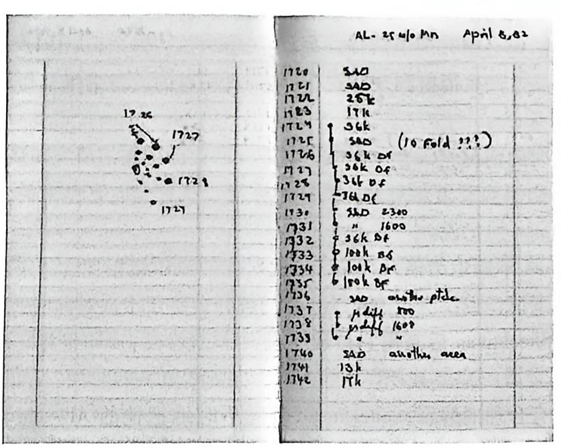 1726
1727
1728
1729
AL-25 w/o Mn April 8, 82
1720 SAD
1721 SAD
1722 25k
1723 17k
1724 36k
1725 SAD (10 Fold ???)
1726 36k DF
1727 36k DF
1728 36k DF
1729 36k DF
1730 SAD 2300
1731 " 1600
1732 36k DF
1733 100k DF
1734 100k DF
1735 100k BF
1736 SAD another ptcle
1737 μdiff 800
1738 μdiff 1600
1739 " "
1740 SAD another area
1741 13k
1742 17k